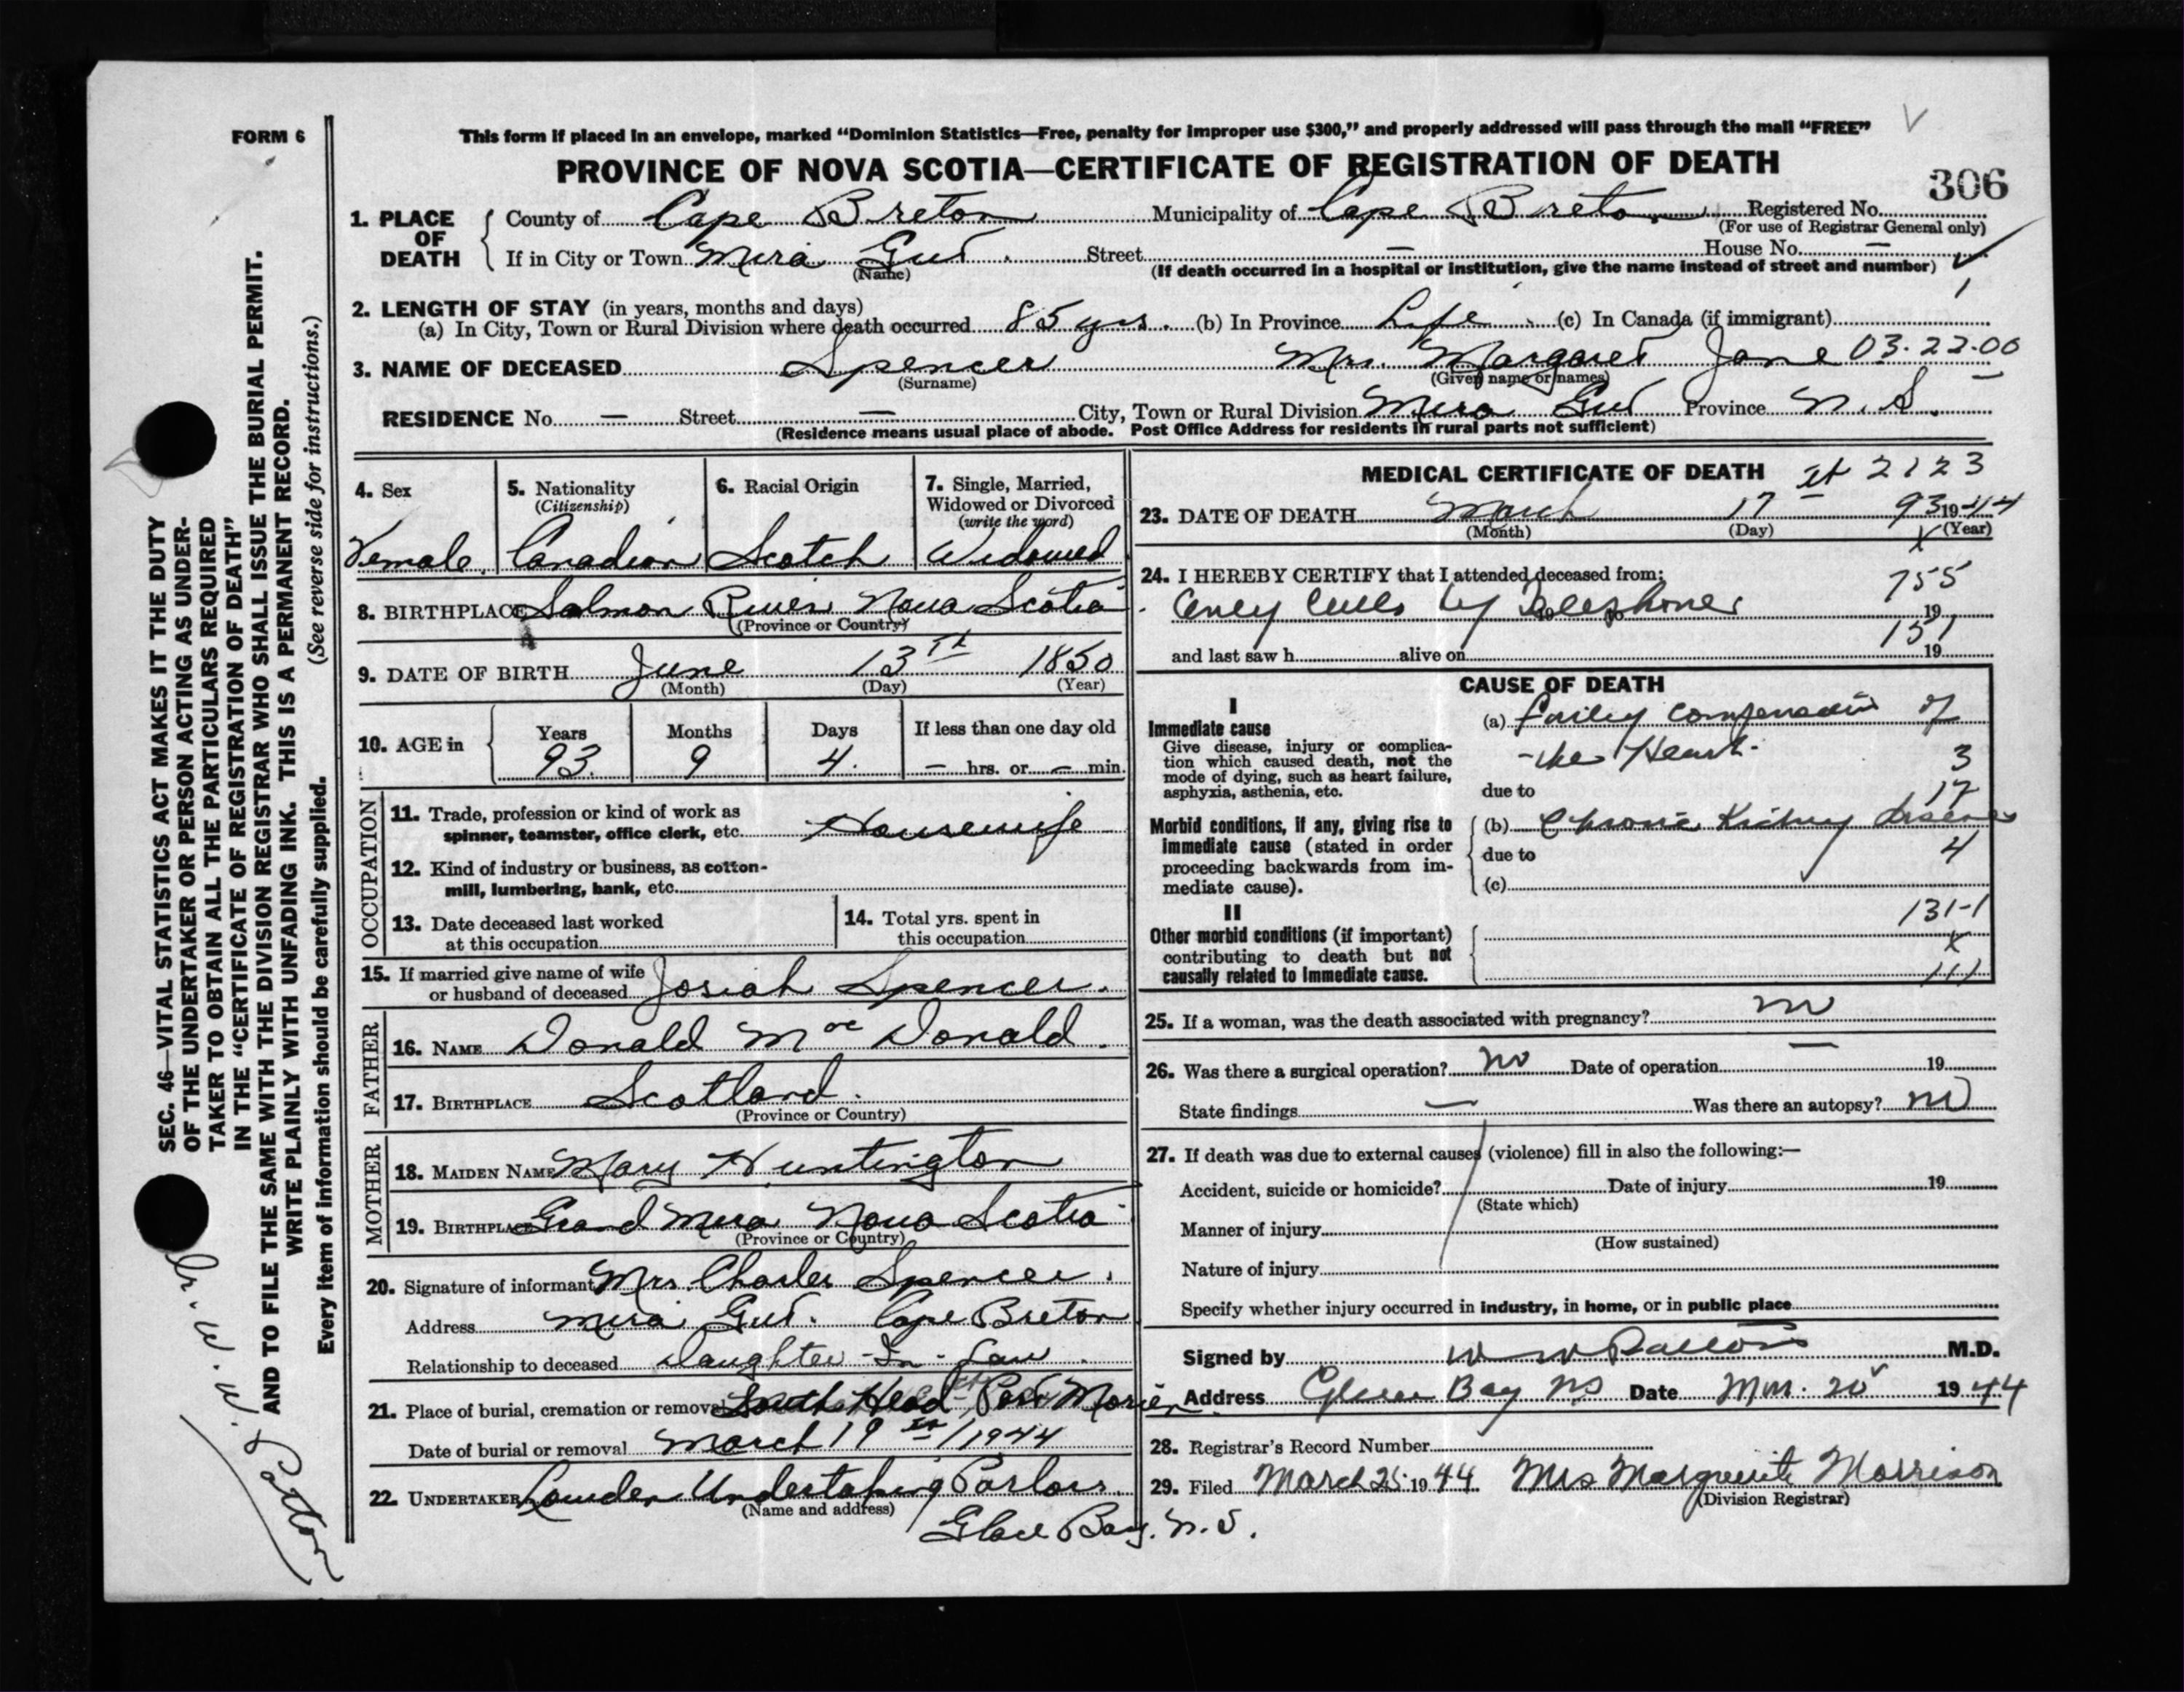 FORM 6
This form if placed in an envelope, marked “Dominion Statistics—Free, penalty for improper use $300,” and properly addressed will pass through the mail “FREE”
PROVINCE OF NOVA SCOTIA—CERTIFICATE OF REGISTRATION OF DEATH
306
1. PLACE OF DEATH
County of Cape Breton Municipality of Cape Breton Registered No.
(For use of Registrar General only)
If in City or Town Mira Gut Street — House No. —
(Name) (If death occurred in a hospital or institution, give the name instead of street and number)
2. LENGTH OF STAY (in years, months and days)
(a) In City, Town or Rural Division where death occurred 85 yrs. (b) In Province Life (c) In Canada (if immigrant)
3. NAME OF DECEASED Spencer Mrs. Margaret Jane 03-22-00
(Surname) (Given name or names)
RESIDENCE No. — Street — City, Town or Rural Division Mira Gut Province N. S.
(Residence means usual place of abode. Post Office Address for residents in rural parts not sufficient)
4. Sex
Female
5. Nationality
(Citizenship)
Canadian
6. Racial Origin
Scotch
7. Single, Married,
Widowed or Divorced
(write the word)
Widowed
8. BIRTHPLACE Salmon River Nova Scotia
(Province or Country)
9. DATE OF BIRTH June 13th 1850
(Month) (Day) (Year)
10. AGE in
Years Months Days If less than one day old
93 9 4 — hrs. or — min.
OCCUPATION
11. Trade, profession or kind of work as
spinner, teamster, office clerk, etc. Housewife
12. Kind of industry or business, as cotton-
mill, lumbering, bank, etc.
13. Date deceased last worked
at this occupation
14. Total yrs. spent in
this occupation
15. If married give name of wife
or husband of deceased Josiah Spencer.
FATHER
16. NAME Donald Mac Donald.
17. BIRTHPLACE Scotland.
(Province or Country)
MOTHER
18. MAIDEN NAME Mary Huntington
19. BIRTHPLACE Grand Mira Nova Scotia
(Province or Country)
20. Signature of informant Mrs. Charles Spencer.
Address Mira Gut. Cape Breton
Relationship to deceased Daughter-In-Law
21. Place of burial, cremation or removal South Head Port Morien
Date of burial or removal March 19th/1944
22. UNDERTAKER Undertaking Parlors.
(Name and address)
Glace Bay. N. S.
MEDICAL CERTIFICATE OF DEATH 2123
23. DATE OF DEATH March 17 93 1944
(Month) (Day) (Year)
X
24. I HEREBY CERTIFY that I attended deceased from:
755
by Telephone 19
151
and last saw h alive on 19
CAUSE OF DEATH
I
Immediate cause
Give disease, injury or complica-
tion which caused death, not the
mode of dying, such as heart failure,
asphyxia, asthenia, etc.
(a) compensation of
the Heart
3
due to
17
Morbid conditions, if any, giving rise to
immediate cause (stated in order
proceeding backwards from im-
mediate cause).
(b) Chronic Kidney Disease
due to
4
(c)
131-1
II
Other morbid conditions (if important)
contributing to death but not
causally related to immediate cause.
X
111
25. If a woman, was the death associated with pregnancy? no
26. Was there a surgical operation? no Date of operation — 19
State findings — Was there an autopsy? no
27. If death was due to external causes (violence) fill in also the following:—
Accident, suicide or homicide? Date of injury 19
(State which)
Manner of injury
(How sustained)
Nature of injury
Specify whether injury occurred in industry, in home, or in public place
Signed by W W Patton M.D.
Address Glace Bay NS Date Mar. 20 1944
28. Registrar's Record Number
29. Filed March 25 1944 Mrs Marguerite Morrison
(Division Registrar)
SEC. 46—VITAL STATISTICS ACT MAKES IT THE DUTY
OF THE UNDERTAKER OR PERSON ACTING AS UNDER-
TAKER TO OBTAIN ALL THE PARTICULARS REQUIRED
IN THE “CERTIFICATE OF REGISTRATION OF DEATH”
AND TO FILE THE SAME WITH THE DIVISION REGISTRAR WHO SHALL ISSUE THE BURIAL PERMIT.
WRITE PLAINLY WITH UNFADING INK. THIS IS A PERMANENT RECORD.
Every item of information should be carefully supplied. (See reverse side for instructions.)
Dr. W. W. Patton